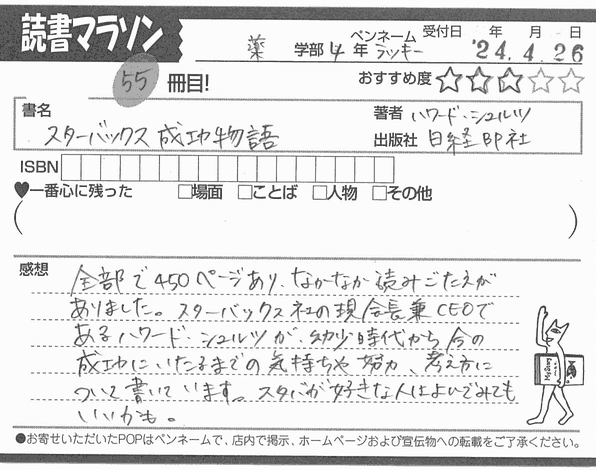 読書マラソン
薬 学部 4 年 ペンネーム ラッキー 受付日 年 月 日 '24.4.26
55 冊目! おすすめ度 ☆☆☆☆☆
書名 スターバックス成功物語
著者 ハワード・シュルツ
出版社 日経BP社
ISBN
♥一番心に残った □場面 □ことば □人物 □その他
( )
感想
全部で450ページあり、なかなか読みごたえが
ありました。スターバックス社の現会長兼CEOで
あるハワード・シュルツが、幼少時代から今の
成功にいたるまでの気持ちや努力、考え方に
ついて書いています。スタバが好きな人はよんでみても
いいかも。
●お寄せいただいたPOPはペンネームで、店内で掲示、ホームページおよび宣伝物への転載をご了承ください。